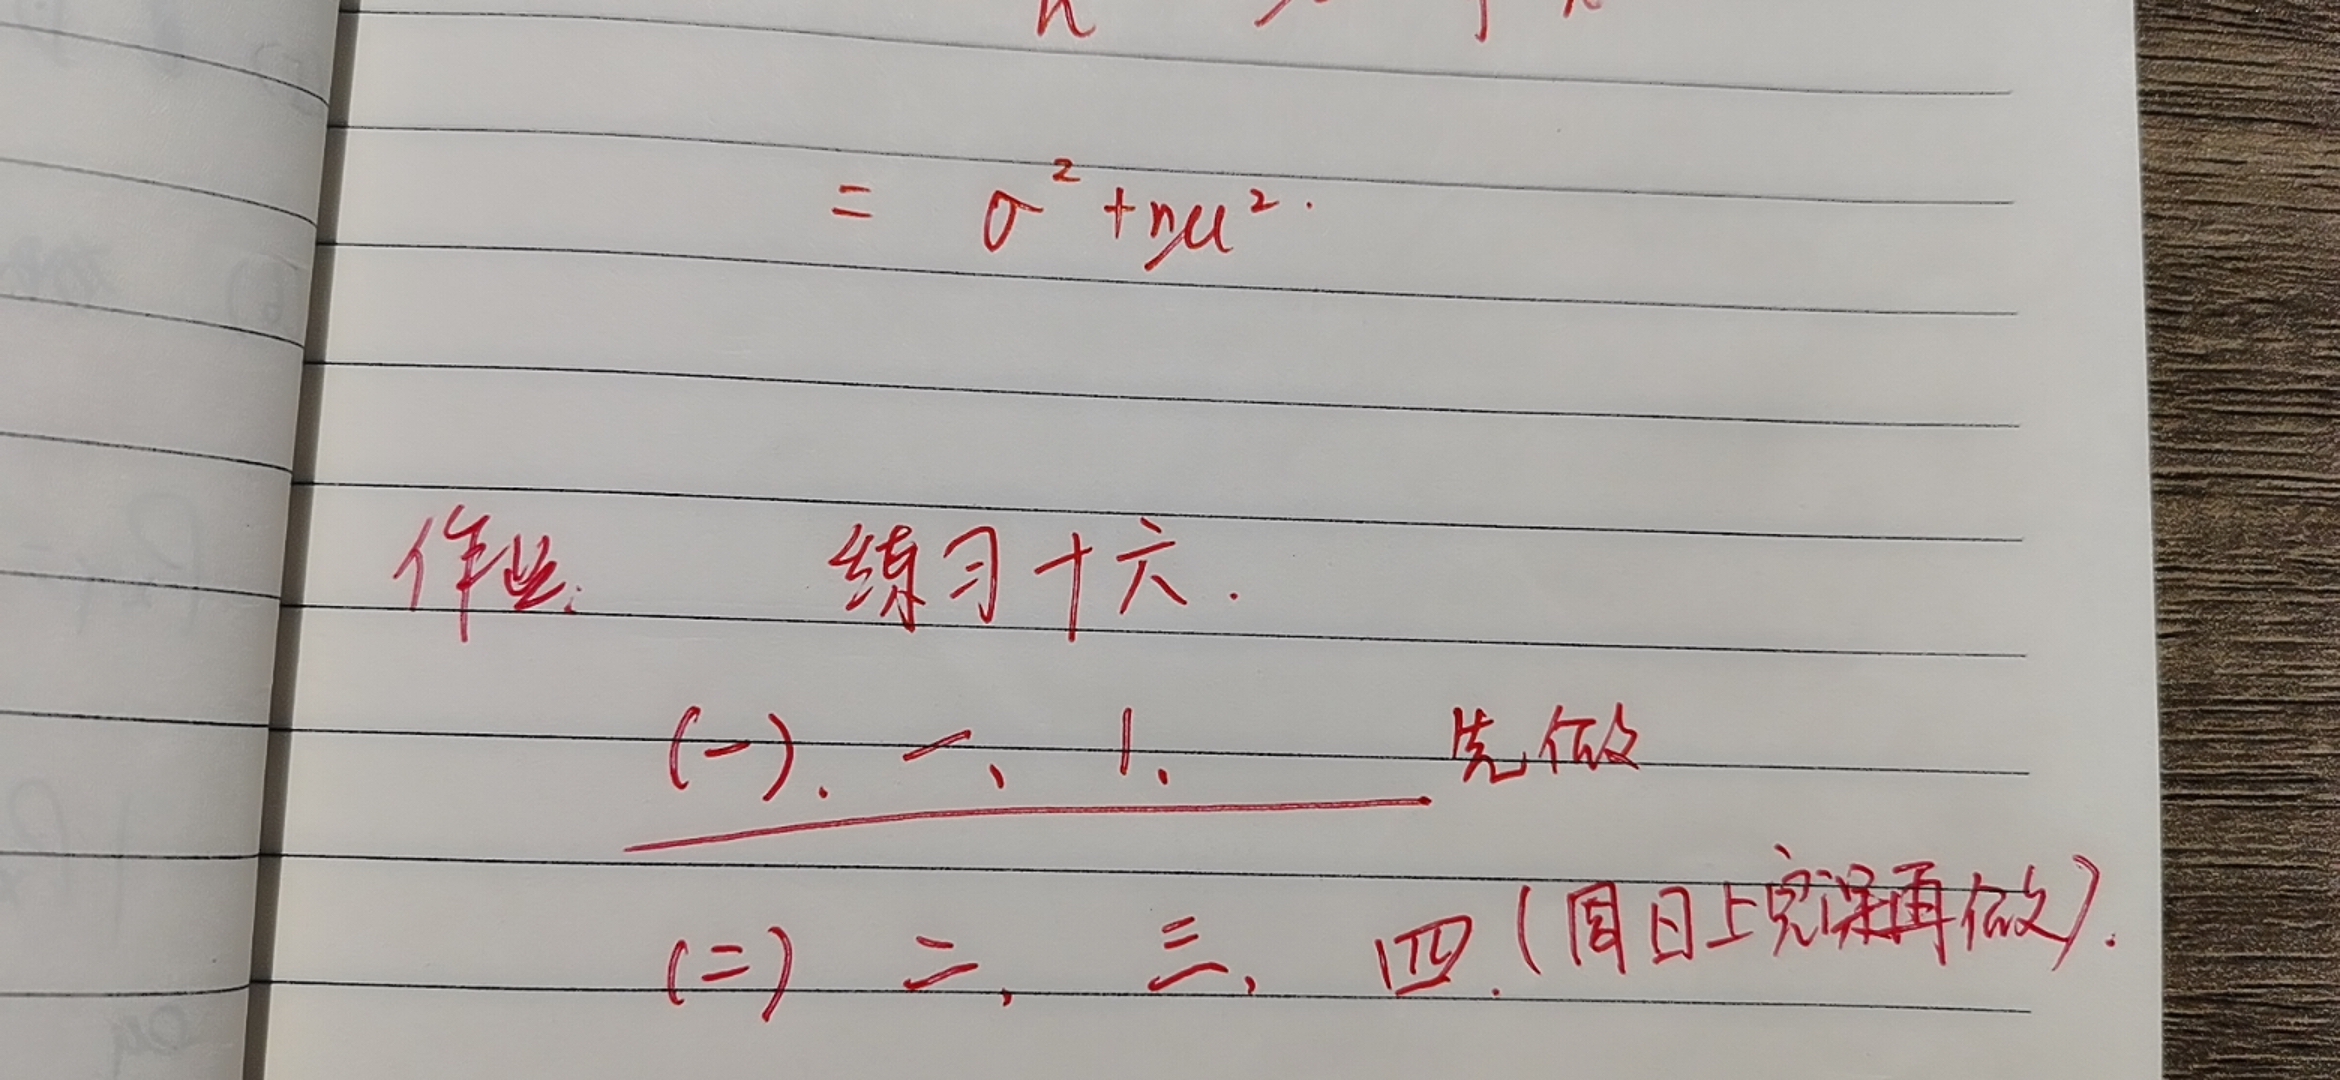 = σ² + nμ².
作业: 练习十六.
(一). 一、 1、 先做
(二) 二、 三、 四. (周日上完课再做).